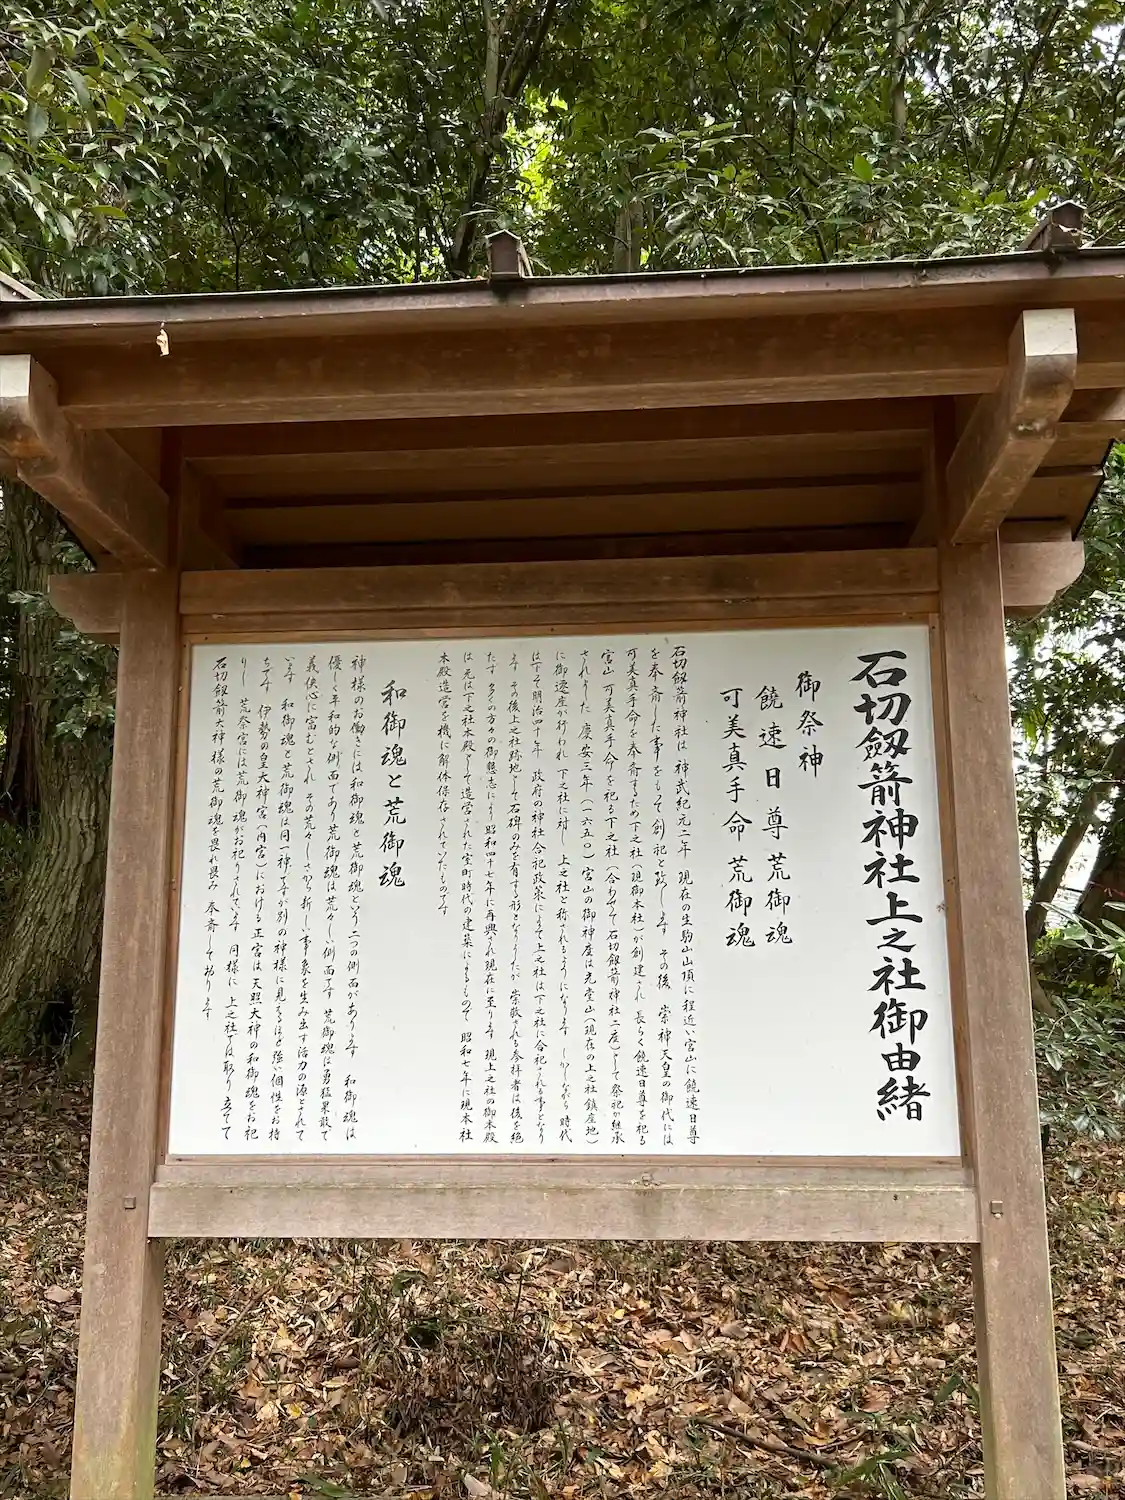 石切劔箭神社上之社御由緒
御祭神
饒速日尊 荒御魂
可美真手命 荒御魂
石切劔箭神社は 神武紀元二年 現在の生駒山山頂に程近い宮山に饒速日尊
を奉斎した事をもって創祀と致します その後 崇神天皇の御代には
可美真手命を奉斎するため下之社(現御本社)が創建され 長らく饒速日尊を祀る
宮山 可美真手命を祀る下之社(合わせて石切劔箭神社二座)として祭祀が継承
されました 慶安三年(一六五〇)宮山の御神座は光堂山(現在の上之社鎮座地)
に御遷座が行われ 下之社に対し 上之社と称されるようになります しかしながら 時代
は下って明治四十年 政府の神社合祀政策によって上之社は下之社に合祀される事となり
ます その後上之社跡地として石碑のみを有する形となりましたが 崇敬される参拝者は後を絶
たず 多くの方々の御懇志により昭和四十七年に再興され現在に至ります 現上之社の御本殿
は 元は下之社本殿として造営された室町時代の建築によるもので 昭和七年に現本社
本殿造営を機に解体保存されていたものです
和御魂と荒御魂
神様のお働きには和御魂と荒御魂という二つの側面があります 和御魂は
優しく平和的な側面であり荒御魂は荒々しい側面です 荒御魂は勇猛果敢で
義侠心に富むとされ その荒々しさから新しい事象を生み出す活力の源とされて
います 和御魂と荒御魂は同一神ですが別の神様に見えるほど強い個性をお持
ちです 伊勢の皇大神宮(内宮)における正宮は 天照大神の和御魂をお祀
りし 荒祭宮には荒御魂がお祀りされています 同様に 上之社では取り立てて
石切劔箭大神様の荒御魂を畏れ畏み 奉斎しております